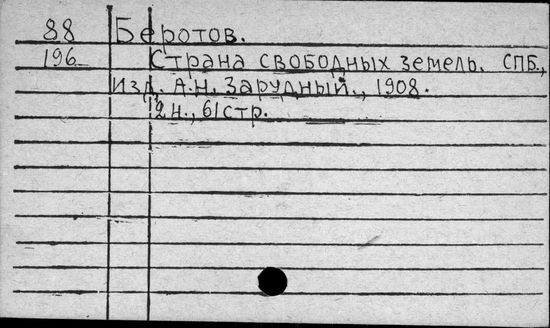 88 Беротов.
196 Страна свободных земель. СПБ.,
Изд. А.Н. Зарудный., 1908.
2н., 61стр.